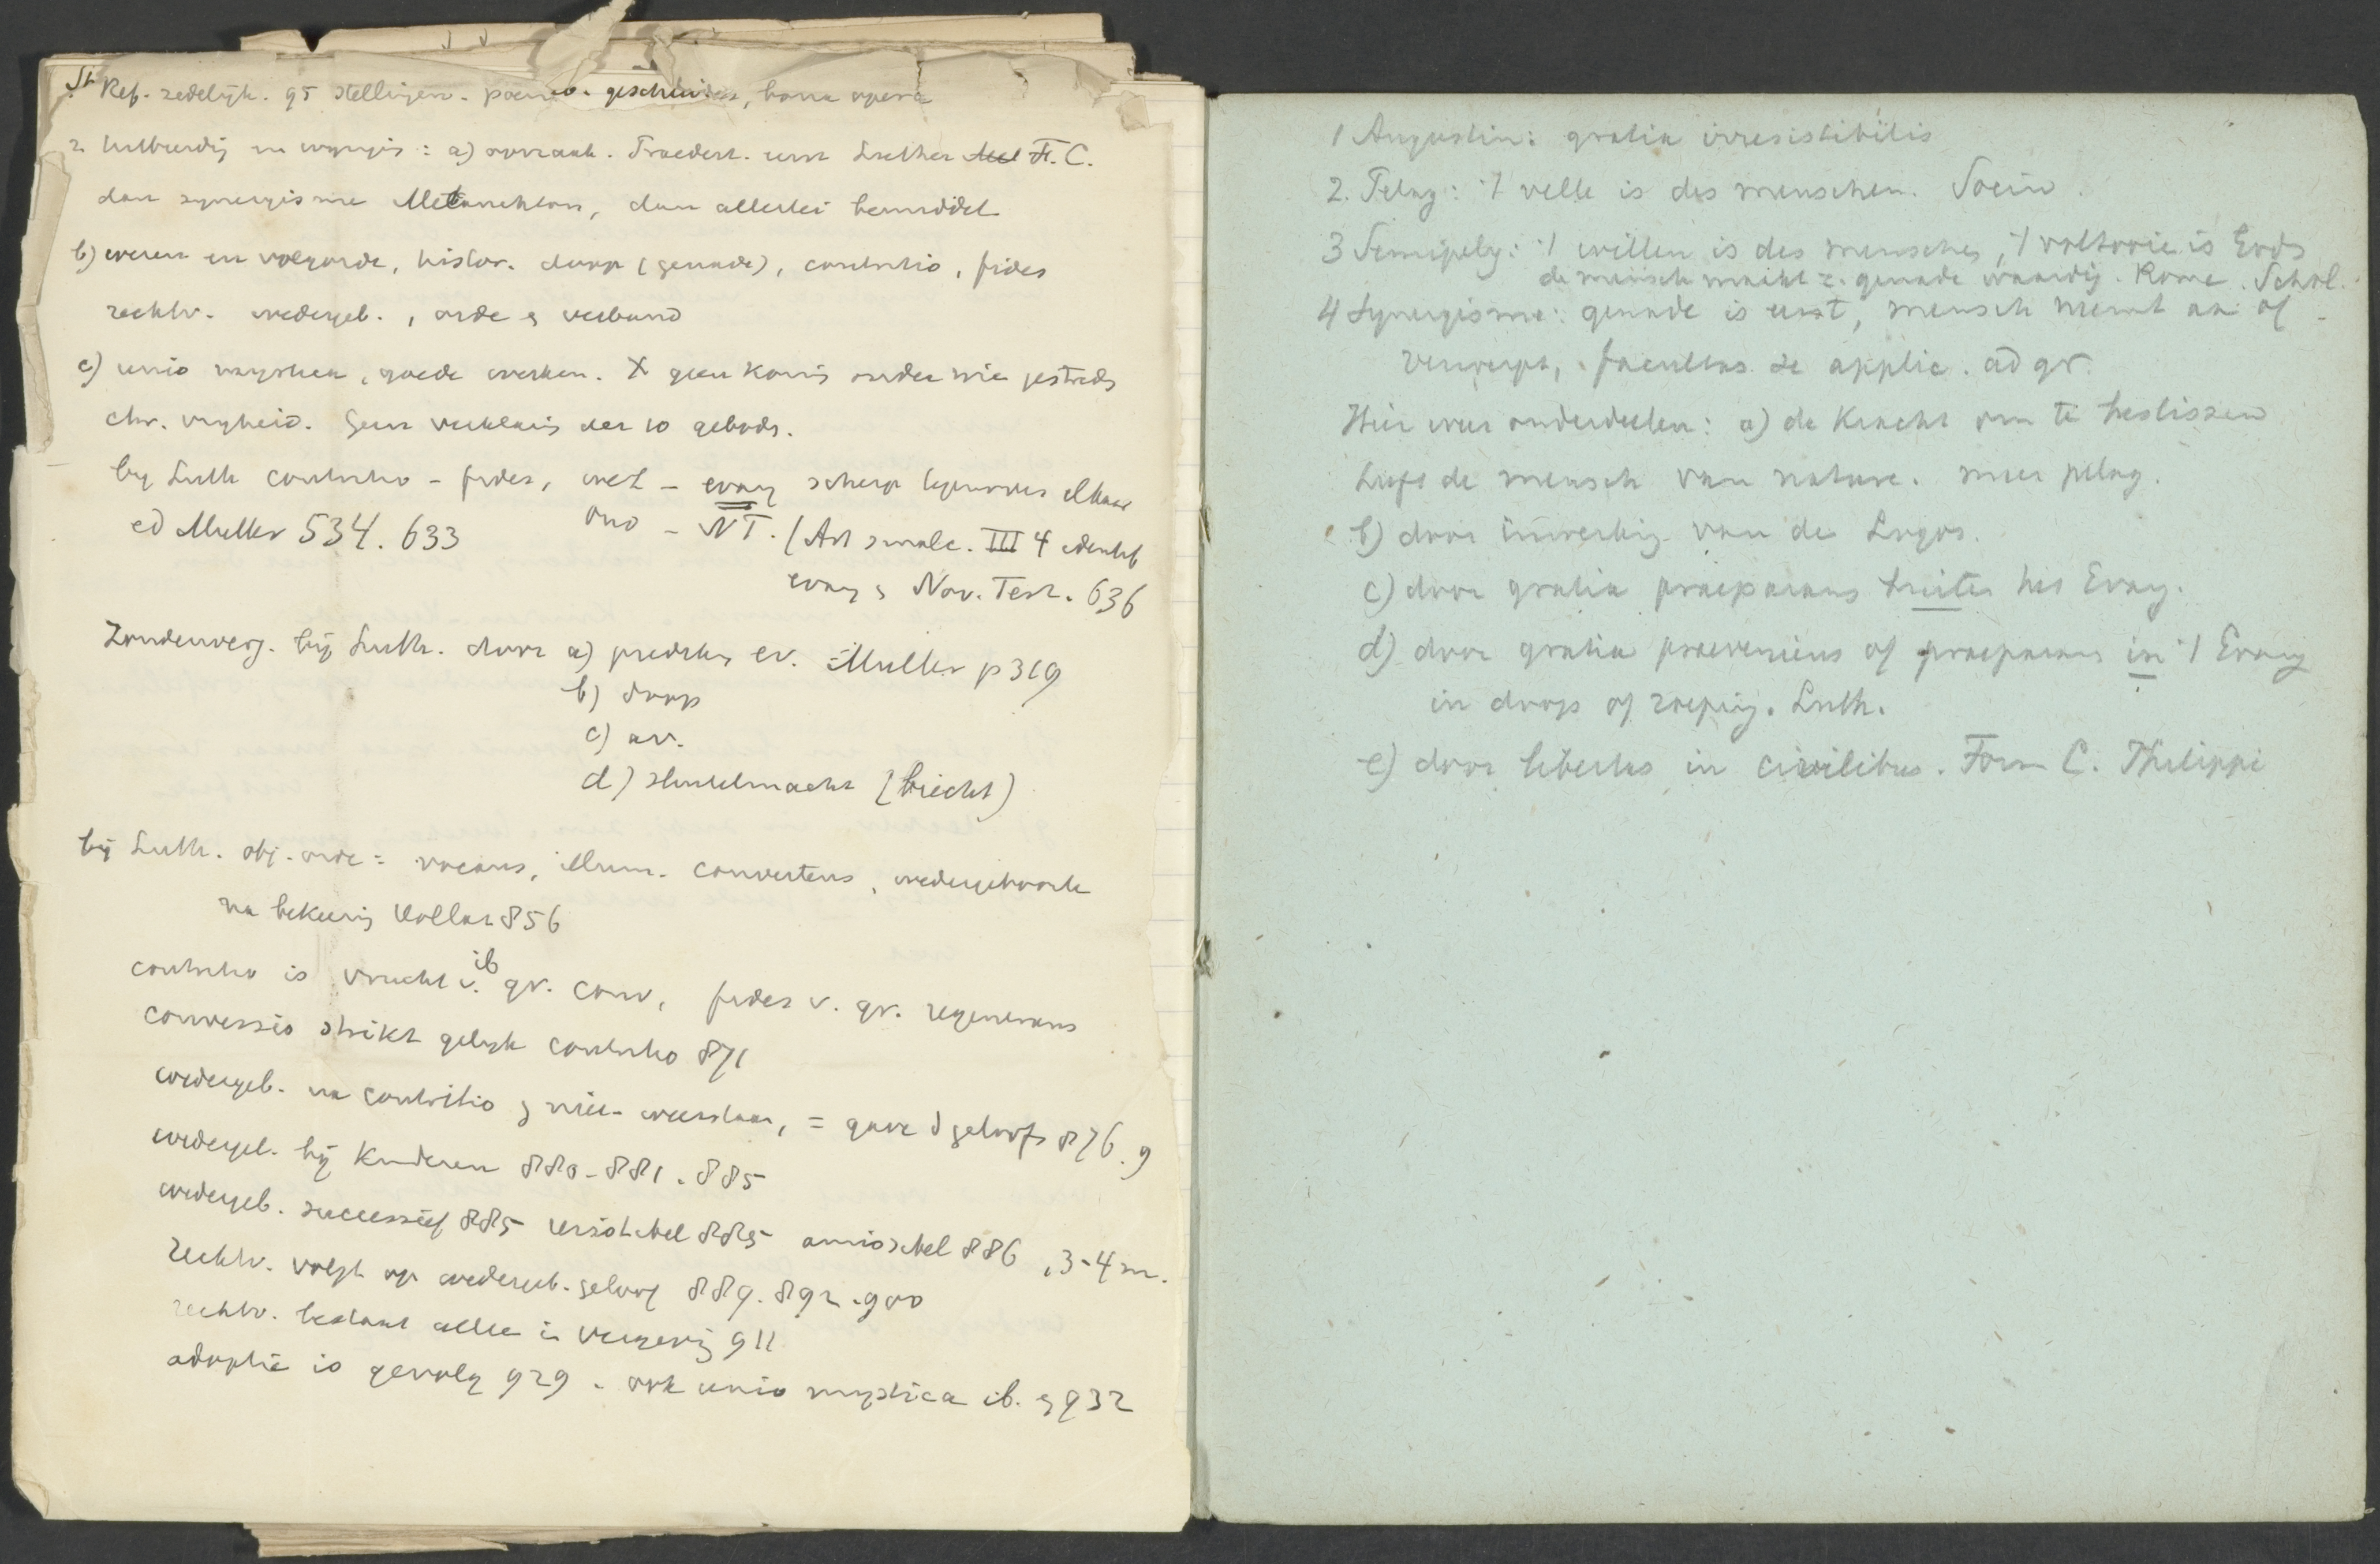 Ref. zedelijk. 95 stellingen. poenit. geschiedes, bona opera
2. a) oorzaak. Praedest. eerst Luther F. C.
dan synergisme Melanchton, dan allerlei bemiddel
b) wezen en volgorde, histor. doop (genade), contritio, fides
rechtv. wedergeb., orde & verband
c) unio mystica, goede werken. X geen kennis onder wie
chr. vryheid. Geen verklaring der 10 gebodn.
by Luth contritio - fides, wet - evang scherp tegenover elkaar
ed Muller 534. 633
oud - NT. (Art smalc. III 4 identif
evang & Nov. Test. 636
Zondenverg. bij Luth. door a) predikg ev. Muller p 319
b) doop
c) av.
d) sleutelmacht (biecht)
bij Luth. obj. orde = vocans, illum. convertens, wedergeboorte
na bekeering Hollaz 856
contritio is vrucht v. gr. conv, fides v. gr. regenerans
ib
conversio strikt gelyk contritio 871
wedergeb. na contritio & niet-weerstaan, = gave d geloofs 876. 9
wedergeb. bij Kinderen 880-881. 885
wedergeb. successief 885 resistibel 885 amissibel 886, 3-4 m.
rechtv. volgt op wedergeb. geloof 889. 892. 900
rechtv. bestaat alleen in vergevg 911
adoptie is gevolg 929. ook unio mystica ib. & 932
1 Augustin: gratia irresistibilis
2. Pelag: 't velle is des menschen. Socin.
3 Semipelg: 't willen is des menschen, 't voltooie is Gods
de mensch maakt z. genade waardig. Rome. Schol.
4 Synergisme: genade is eerst, mensch neemt aan of
verwerpt, facultas se applic. ad gr.
Hier weer onderdeelen: a) de Kracht om te beslissen
heeft de mensch van nature. meer pelag.
b) door inwerkg van de Logos.
c) door gratia praeparans buiten het Evang.
d) door gratia praeveniens of praeparans in 't Evang
in doop of roeping. Luth.
e) door libertas in civilibus. Form C. Philippi